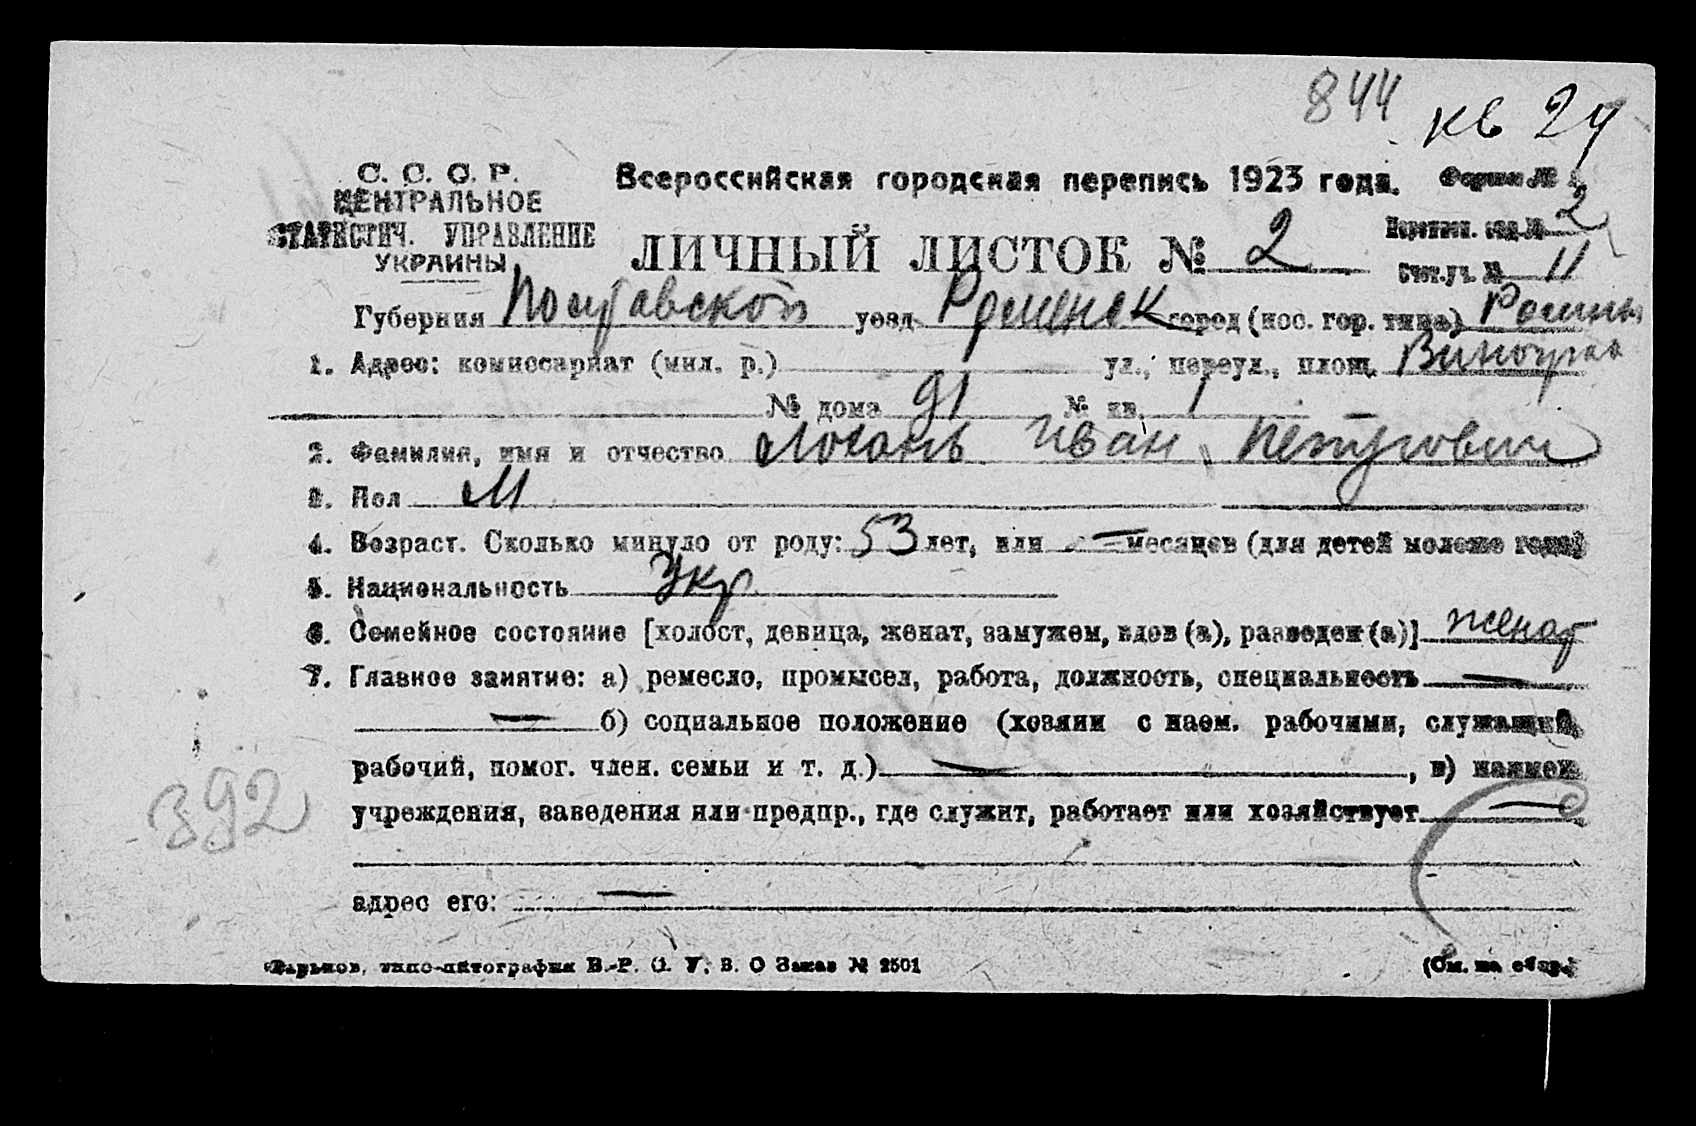 844 кв 24
С. С. С. Р.
ЦЕНТРАЛЬНОЕ
СТАТИСТИЧ. УПРАВЛЕНИЕ
УКРАИНЫ
Всероссийская городская перепись 1923 года. Форма №
ЛИЧНЫЙ ЛИСТОК № 2
Переписн. отд. № 2
Счетн. уч. № 11
Губерния Полтавской уезд Роменск город (пос. гор. типа) Ромны
1. Адрес: комиссариат (мил. р.) ул., переул., площ. Виноград
№ дома 91 № кв. 1
2. Фамилия, имя и отчество Лохань Иван Петрович
3. Пол М
4. Возраст. Сколько минуло от роду: 53 лет, или — месяцев (для детей моложе года)
5. Национальность Укр
6. Семейное состояние [холост, девица, женат, замужем, вдов (а), разведен (а)] женат
7. Главное занятие: а) ремесло, промысел, работа, должность, специальность —
— б) социальное положение (хозяин с наем. рабочими, служащий,
рабочий, помог. член. семьи и т. д.) — , в) наимен.
учреждения, заведения или предпр., где служит, работает или хозяйствует —
адрес его: —
392
Харьков, типо-литография В.-Р. О. У. В. О Заказ № 2501
(См. на обор.)